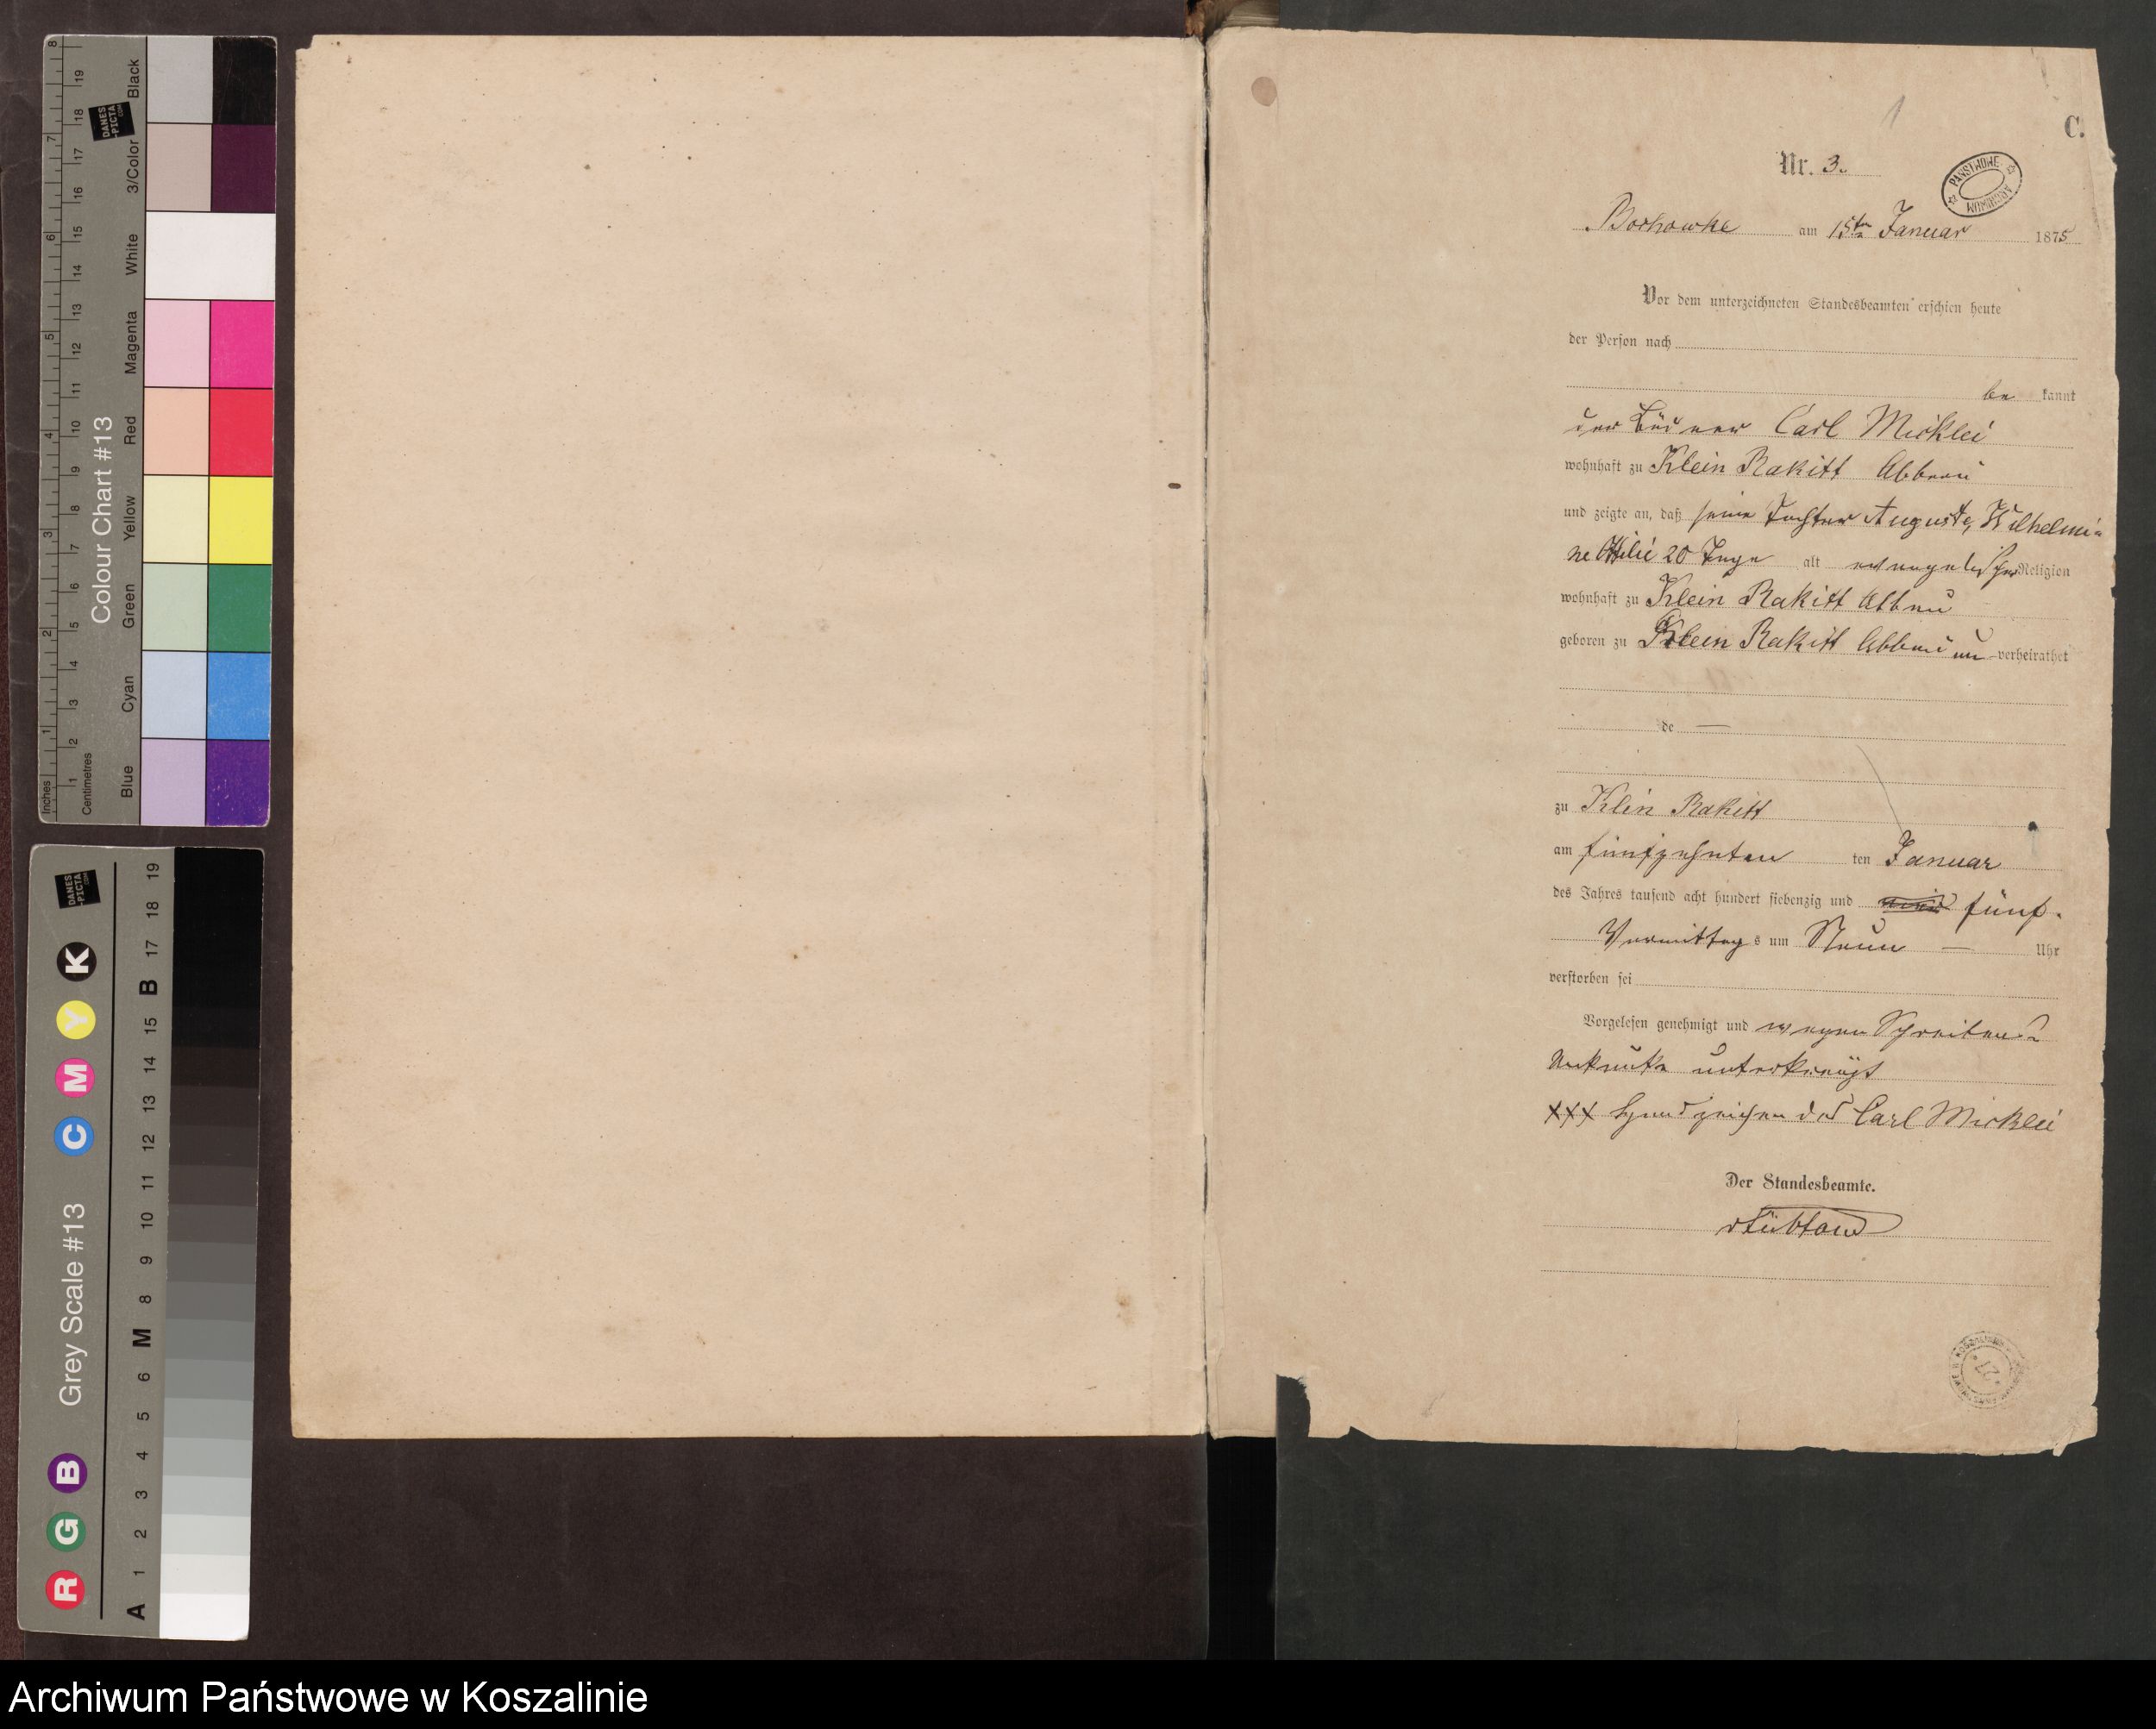 C.
1
Nr. 3.
PAŃSTWOWE ARCHIWUM
Borkowke am 15ten Januar 1875
Vor dem unterzeichneten Standesbeamten erschien heute
der Person nach
be kannt
der Büdner Carl Micklei
wohnhaft zu Klein Rakitt Abbau
und zeigte an, daß seine Tochter Auguste, Wilhelmi-
ne Ottilie 20 Tage alt evangelischer Religion
wohnhaft zu Klein Rakitt Abbau
geboren zu Klein Rakitt Abbau un verheirathet
de —
zu Klein Rakitt
am fünfzehnten ten Januar
des Jahres tausend acht hundert siebenzig und fünf.
Vormittag s um Neun — Uhr
verstorben sei
Vorgelesen genehmigt und wegen Schreibens
unkunde unterkreuzt
XXX Handzeichen des Carl Micklei
Der Standesbeamte.
27
Inches
Centimetres
Colour Chart #13
Blue
Cyan
Green
Yellow
Red
Magenta
White
3/Color
Black
DANES-PICTA.COM
Grey Scale #13
R G B C M Y K
A 1 2 3 4 5 6 M 8 9 10 11 12 13 14 15 B 17 18 19
DANES-PICTA.COM
Archiwum Państwowe w Koszalinie